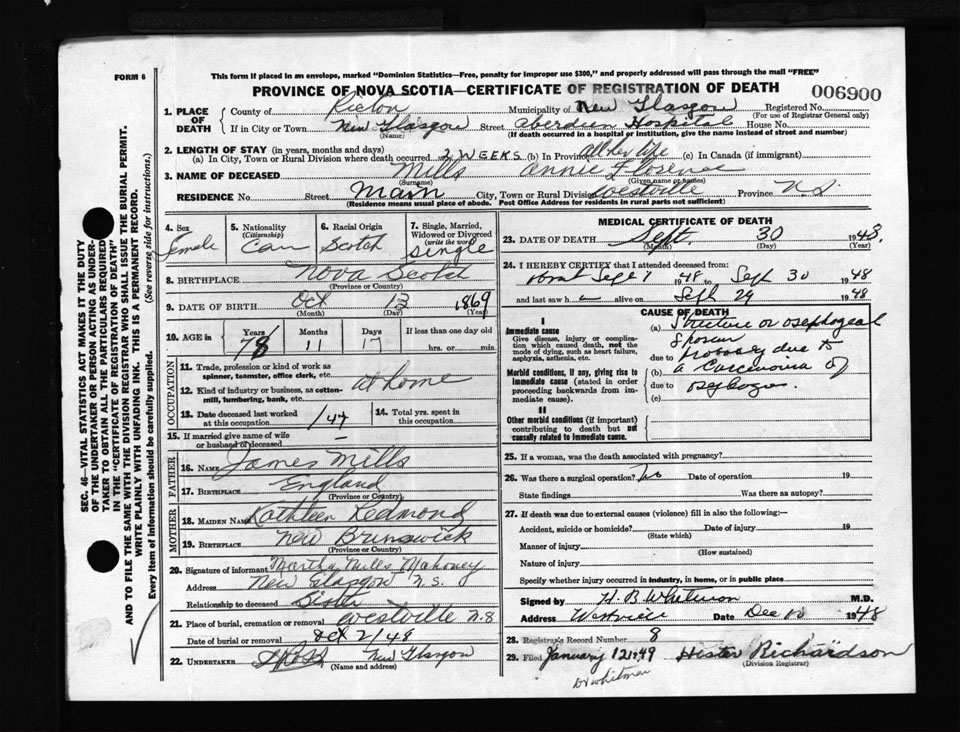 FORM 6
This form if placed in an envelope, marked "Dominion Statistics—Free, penalty for improper use $300," and properly addressed will pass through the mail "FREE"
PROVINCE OF NOVA SCOTIA—CERTIFICATE OF REGISTRATION OF DEATH
006900
1. PLACE OF DEATH
County of Pictou Municipality of New Glasgow Registered No.
(For use of Registrar General only)
If in City or Town New Glasgow Street Aberdeen Hospital House No.
(Name) (If death occurred in a hospital or institution, give the name instead of street and number)
2. LENGTH OF STAY (in years, months and days)
(a) In City, Town or Rural Division where death occurred 2 WEEKS (b) In Province All her life (c) In Canada (if immigrant)
3. NAME OF DECEASED Mills Annie Florence
(Surname) (Given name or names)
RESIDENCE No. Street Main City, Town or Rural Division Westville Province N.S.
(Residence means usual place of abode. Post Office Address for residents in rural parts not sufficient)
4. Sex Female
5. Nationality (Citizenship) Can
6. Racial Origin Scotch
7. Single, Married, Widowed or Divorced (write the word) Single
8. BIRTHPLACE Nova Scotia
(Province or Country)
9. DATE OF BIRTH Oct 13 1869
(Month) (Day) (Year)
10. AGE in Years Months Days If less than one day old
78 11 17 hrs. or min.
OCCUPATION
11. Trade, profession or kind of work as spinner, teamster, office clerk, etc.
12. Kind of industry or business, as cotton-mill, lumbering, bank, etc. at home
13. Date deceased last worked at this occupation /47
14. Total yrs. spent in this occupation
15. If married give name of wife or husband of deceased —
FATHER
16. Name James Mills
17. Birthplace England
(Province or Country)
MOTHER
18. Maiden Name Kathleen Redmond
19. Birthplace New Brunswick
(Province or Country)
20. Signature of informant Martha Mills Mahoney
Address New Glasgow N.S.
Relationship to deceased Sister
21. Place of burial, cremation or removal Westville N.S
Date of burial or removal Oct 2/48
22. UNDERTAKER New Glasgow
(Name and address)
MEDICAL CERTIFICATE OF DEATH
23. DATE OF DEATH Sept. 30 1948
(Month) (Day) (Year)
24. I HEREBY CERTIFY that I attended deceased from:
about Sept 1 1948 to Sept 30 1948
and last saw h alive on Sept 29 1948
CAUSE OF DEATH
I
Immediate cause
Give disease, injury or complication which caused death, not the mode of dying, such as heart failure, asphyxia, asthenia, etc.
Morbid conditions, if any, giving rise to immediate cause (stated in order proceeding backwards from immediate cause).
II
Other morbid conditions (if important) contributing to death but not causally related to immediate cause.
(a) Stricture or osephogeal
due to probably due to
(b) a Carcinoma of
due to
(c)
25. If a woman, was the death associated with pregnancy?
26. Was there a surgical operation? No Date of operation 19
State findings Was there an autopsy?
27. If death was due to external causes (violence) fill in also the following:—
Accident, suicide or homicide? Date of injury 19
(State which)
Manner of injury
(How sustained)
Nature of injury
Specify whether injury occurred in industry, in home, or in public place
Signed by H. B. Whitman M.D.
Address Westville Date Dec 10 1948
28. Registrar's Record Number 8
29. Filed January 12 1949 Hester Richardson
(Division Registrar)
Dr Whitman
SEC. 46—VITAL STATISTICS ACT MAKES IT THE DUTY
OF THE UNDERTAKER OR PERSON ACTING AS UNDER-
TAKER TO OBTAIN ALL THE PARTICULARS REQUIRED
IN THE "CERTIFICATE OF REGISTRATION OF DEATH"
AND TO FILE THE SAME WITH THE DIVISION REGISTRAR WHO SHALL ISSUE THE BURIAL PERMIT.
WRITE PLAINLY WITH UNFADING INK. THIS IS A PERMANENT RECORD.
Every item of information should be carefully supplied. (See reverse side for instructions.)